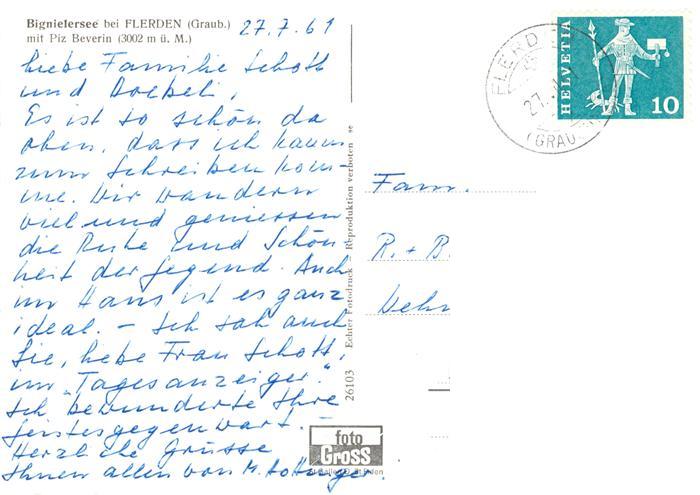 Bignietersee bei FLERDEN (Graub.)
mit Piz Beverin (3002 m ü. M.)
27.7.61
Liebe Familie Schott
und Boebel,
Es ist so schön da
oben, dass ich kaum
zum Schreiben kom-
me. Wir wandern
viel und geniessen
die Ruhe und Schön
heit der Gegend. Auch
im Haus ist es ganz
ideal. – Ich sah auch
Sie, liebe Frau Schott,
im "Tagesanzeiger."
Ich bewunderte Ihre
Geistesgegenwart. –
Herzliche Grüsse
Ihnen allen von M.
Echter Fotodruck – Reproduktion verboten
26103
foto
GROSS
HELVETIA
10
FLERD
27.
(GRAU
Fam.
R. + B.